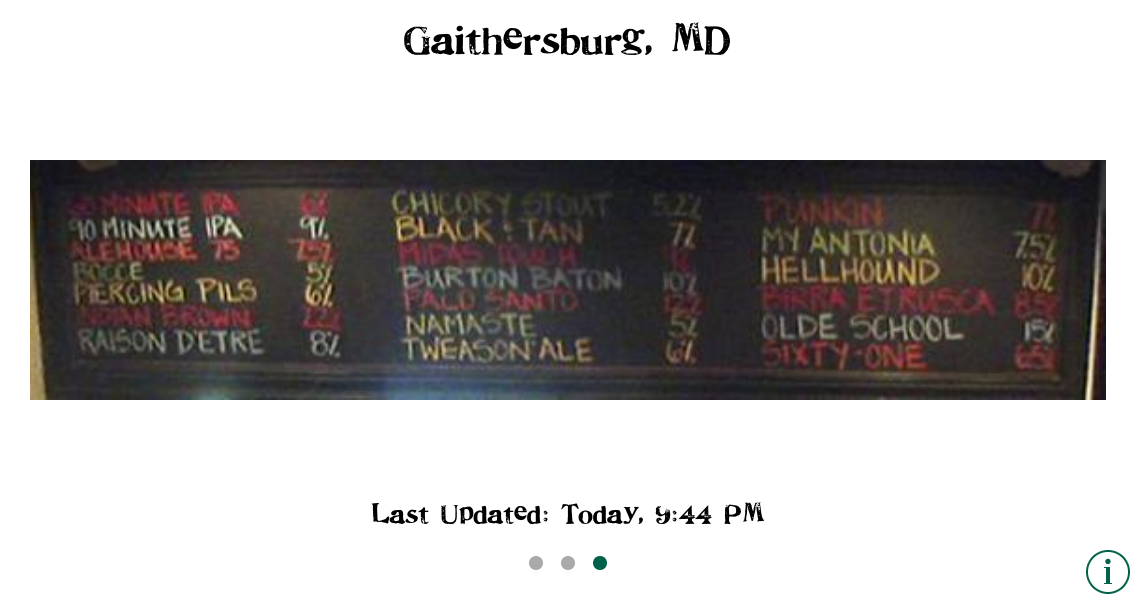 Gaithersburg, MD
60 MINUTE IPA 6%
90 MINUTE IPA 9%
ALEHOUSE 75 7.5%
BOCCE 5%
PIERCING PILS 6%
INDIAN BROWN 7.2%
RAISON D'ETRE 8%
CHICORY STOUT 5.2%
BLACK & TAN 7%
MIDAS TOUCH
BURTON BATON 10%
PALO SANTO 12%
NAMASTE 5%
TWEASON'ALE 6%
PUNKIN 7%
MY ANTONIA 7.5%
HELLHOUND 10%
BIRRA ETRUSCA 8.5%
OLDE SCHOOL 15%
SIXTY-ONE 6.5%
Last Updated: Today, 9:44 PM
i